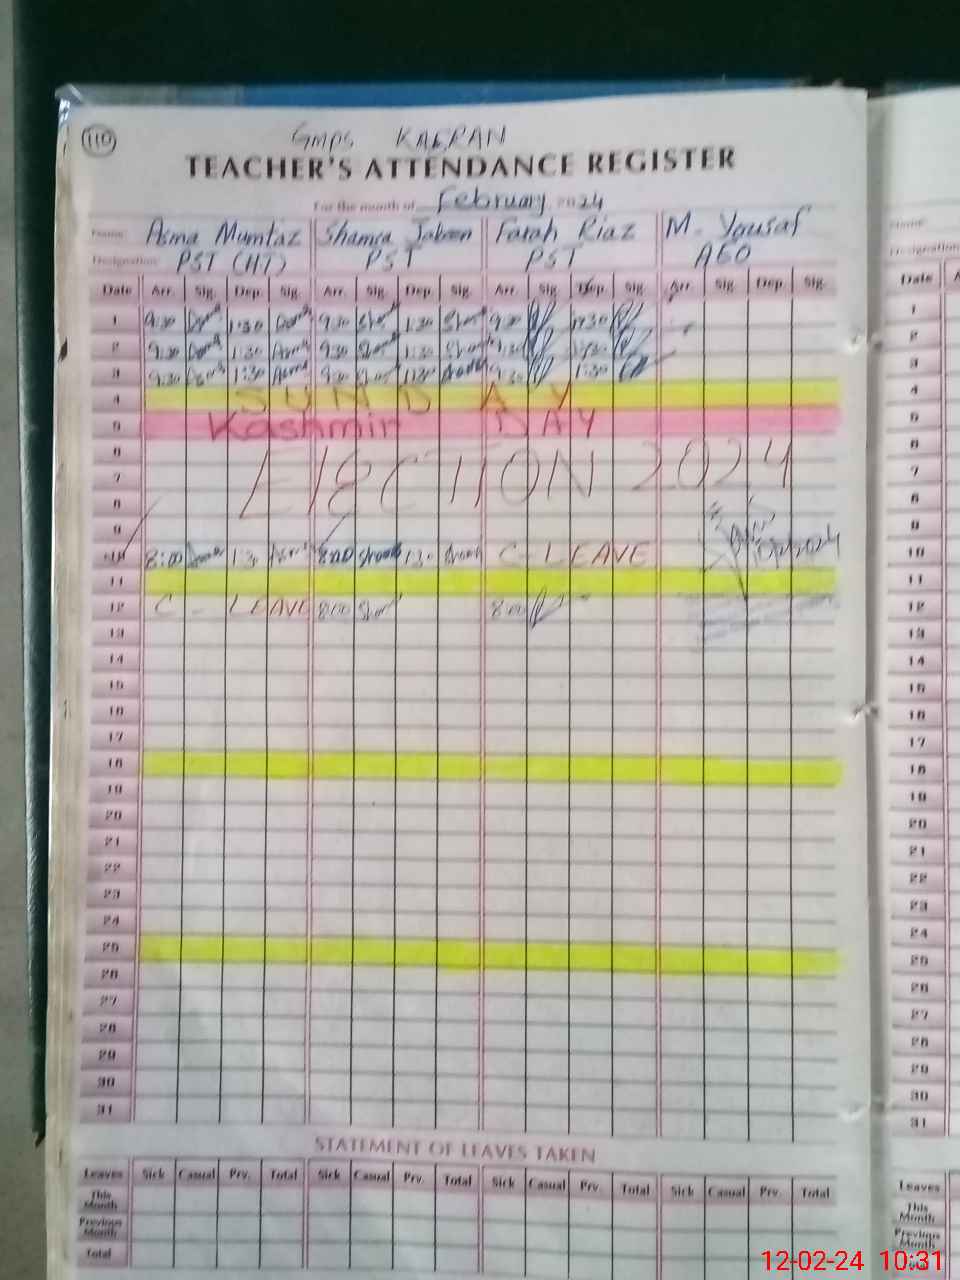 110
GMPS KAKRAN
TEACHER'S ATTENDANCE REGISTER
For the month of February 2024
Name: Asma Mumtaz Shamsa Jabeen Farah Riaz M. Yousaf
Designation: PST (HT) PST PST
Date Arr. Sig. Dep. Sig. Arr. Sig. Dep. Sig. Arr. Sig. Dep. Sig. Arr. Sig. Dep. Sig.
1 9:30 1:30 9:30 1:30 9:30
2 9:30 1:30 9:30 1:30
3 9:30 1:30 9:30 1:30 9:30 1:30
4 SUNDAY
5 Kashmir DAY
6
7 ElECTION 2024
8
9
10 8:00 8:00 C-LEAVE
11
12 C-LEAVE 8:00 8:00
13
14
15
16
17
18
19
20
21
22
23
24
25
26
27
28
29
30
31
STATEMENT OF LEAVES TAKEN
Leaves Sick Casual Prv. Total Sick Casual Prv. Total Sick Casual Prv. Total Sick Casual Prv. Total
This Month
Previous Month
Total
Name:
Designation
Date
1
2
3
4
5
6
7
8
9
10
11
12
13
14
15
16
17
18
19
20
21
22
23
24
25
26
27
28
29
30
31
Leaves
This Month
Previous Month
12-02-24 10:31